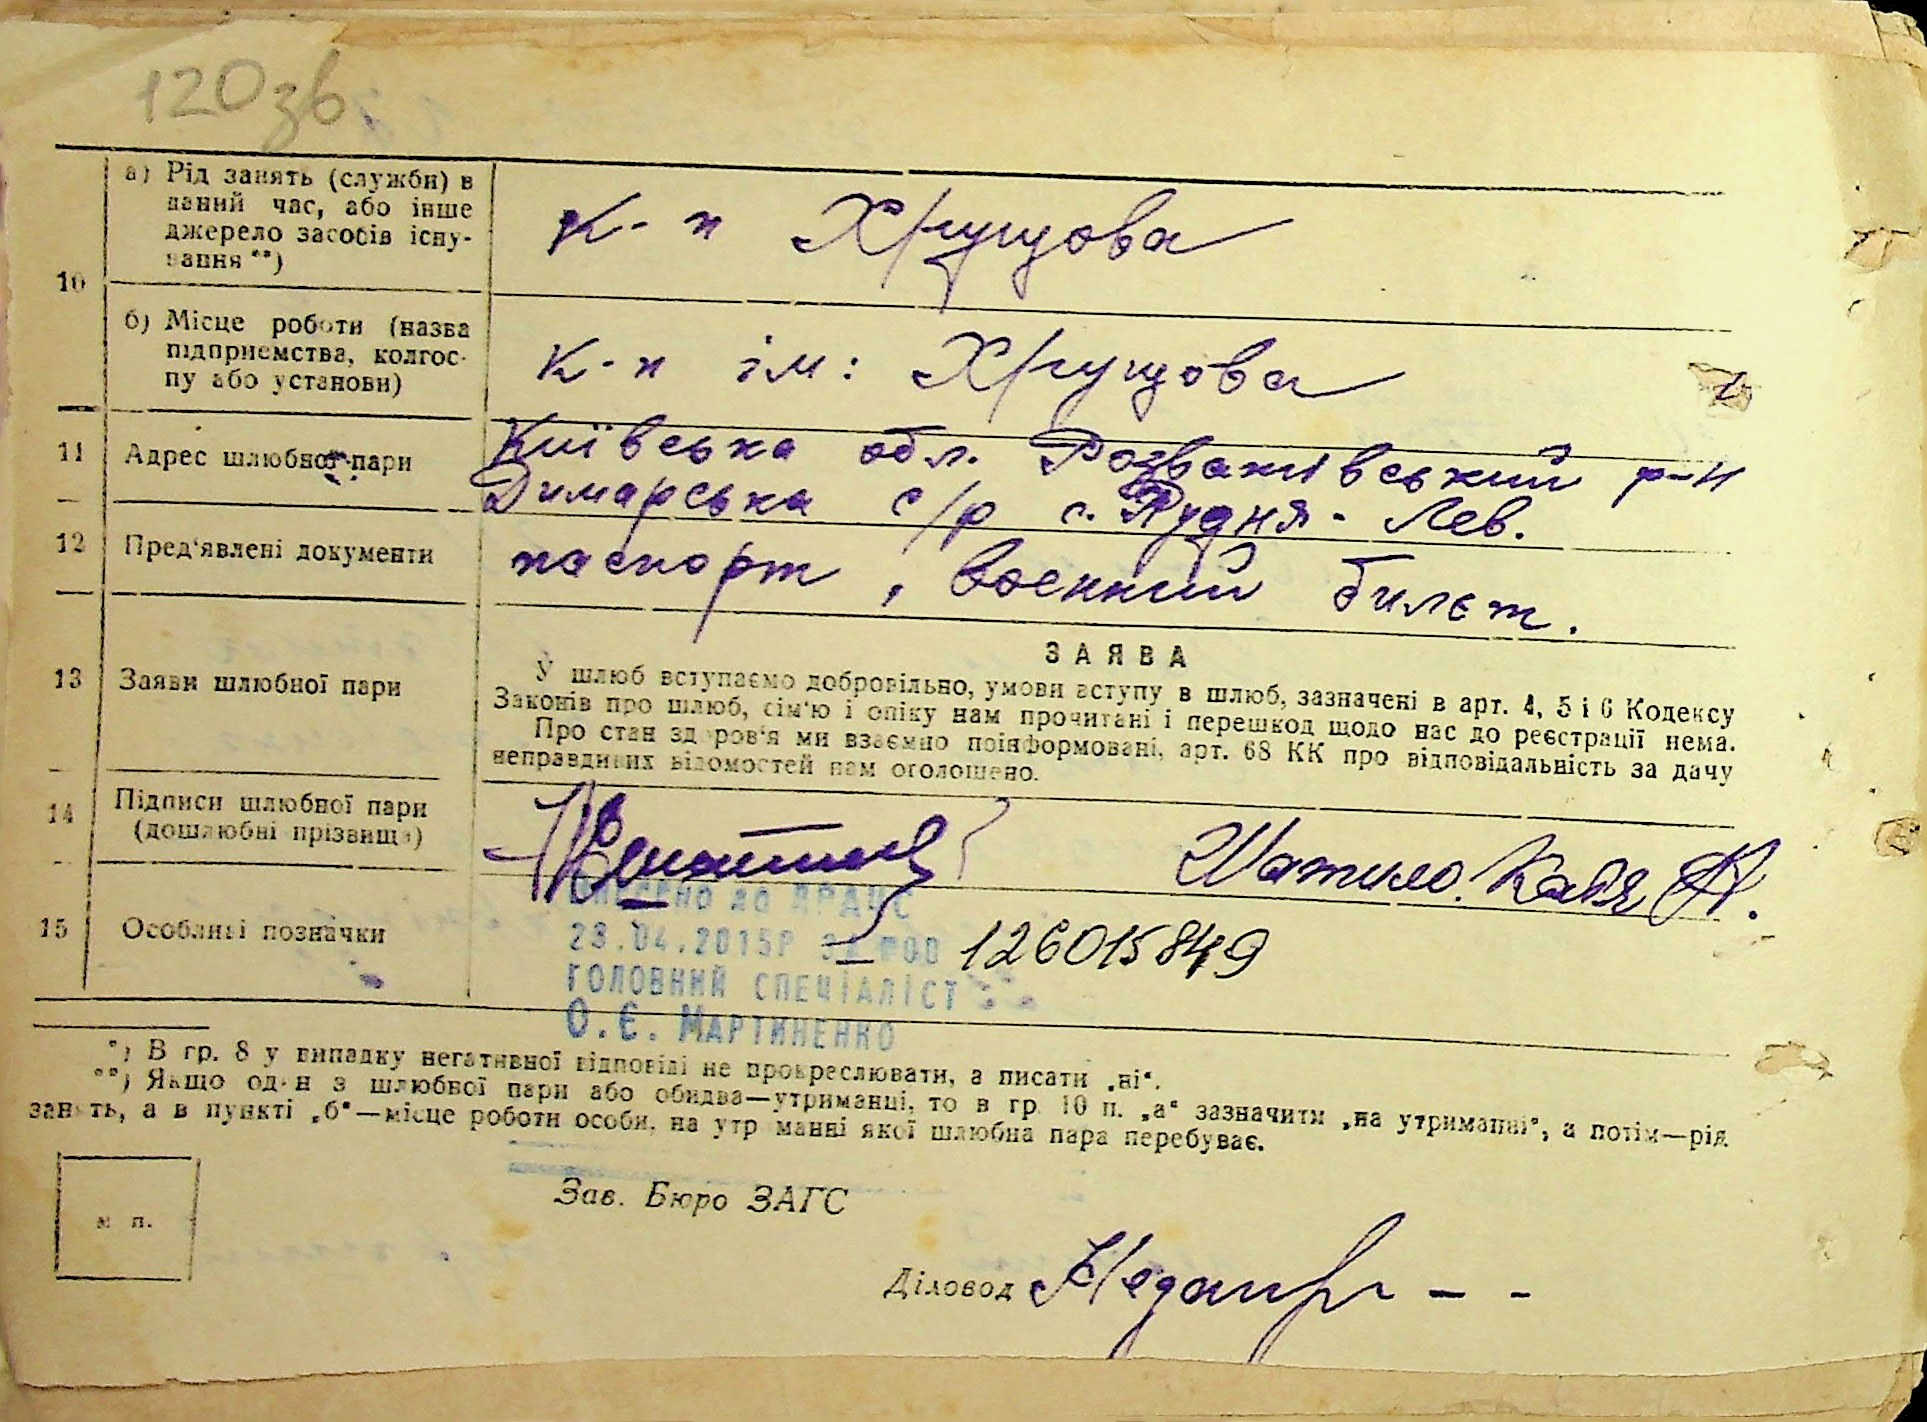 120зв
10
а) Рід занять (служби) в
даний час, або інше
джерело засобів існу-
вання **)
К-п Хрущова
б) Місце роботи (назва
підприємства, колгос-
пу або установи)
К-п ім: Хрущова
11 Адрес шлюбної пари
Київська обл. Розважівський р-н
Димарська с/р с. Рудня-Лев.
12 Пред'явлені документи
паспорт, военний билєт.
13 Заяви шлюбної пари
ЗАЯВА
У шлюб вступаємо добровільно, умови вступу в шлюб, зазначені в арт. 4, 5 і 6 Кодексу
Законів про шлюб, сім'ю і опіку нам прочитані і перешкод щодо нас до реєстрації нема.
Про стан здоров'я ми взаємно поінформовані, арт. 68 КК про відповідальність за дачу
неправдивих відомостей нам оголошено.
14 Підписи шлюбної пари
(дошлюбні прізвища)
Шатило. Катя
15 Особливі позначки
ВНЕСЕНО до ДРАЦС
23.04.2015Р за №00 126015849
ГОЛОВНИЙ СПЕЦІАЛІСТ
О.Є. МАРТИНЕНКО
*) В гр. 8 у випадку негативної відповіді не прокреслювати, а писати „ні“.
**) Якщо один з шлюбної пари або обидва—утриманці, то в гр. 10 п. „а“ зазначити „на утриманні“, а потім—рід
занять, а в пункті „б“—місце роботи особи, на утриманні якої шлюбна пара перебуває.
м п.
Зав. Бюро ЗАГС
Діловод